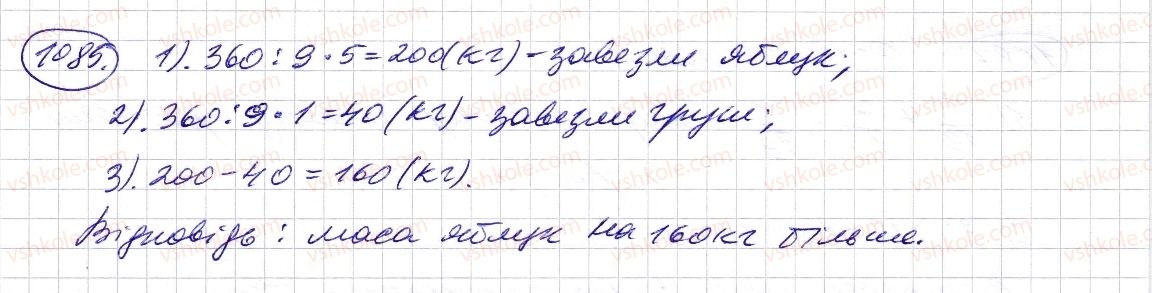 1085. 1). 360 : 9 · 5 = 200 (кг) – завезли яблук;
2). 360 : 9 · 1 = 40 (кг) – завезли груш;
3). 200 – 40 = 160 (кг).
Відповідь : маса яблук на 160 кг більше.
vshkole.com